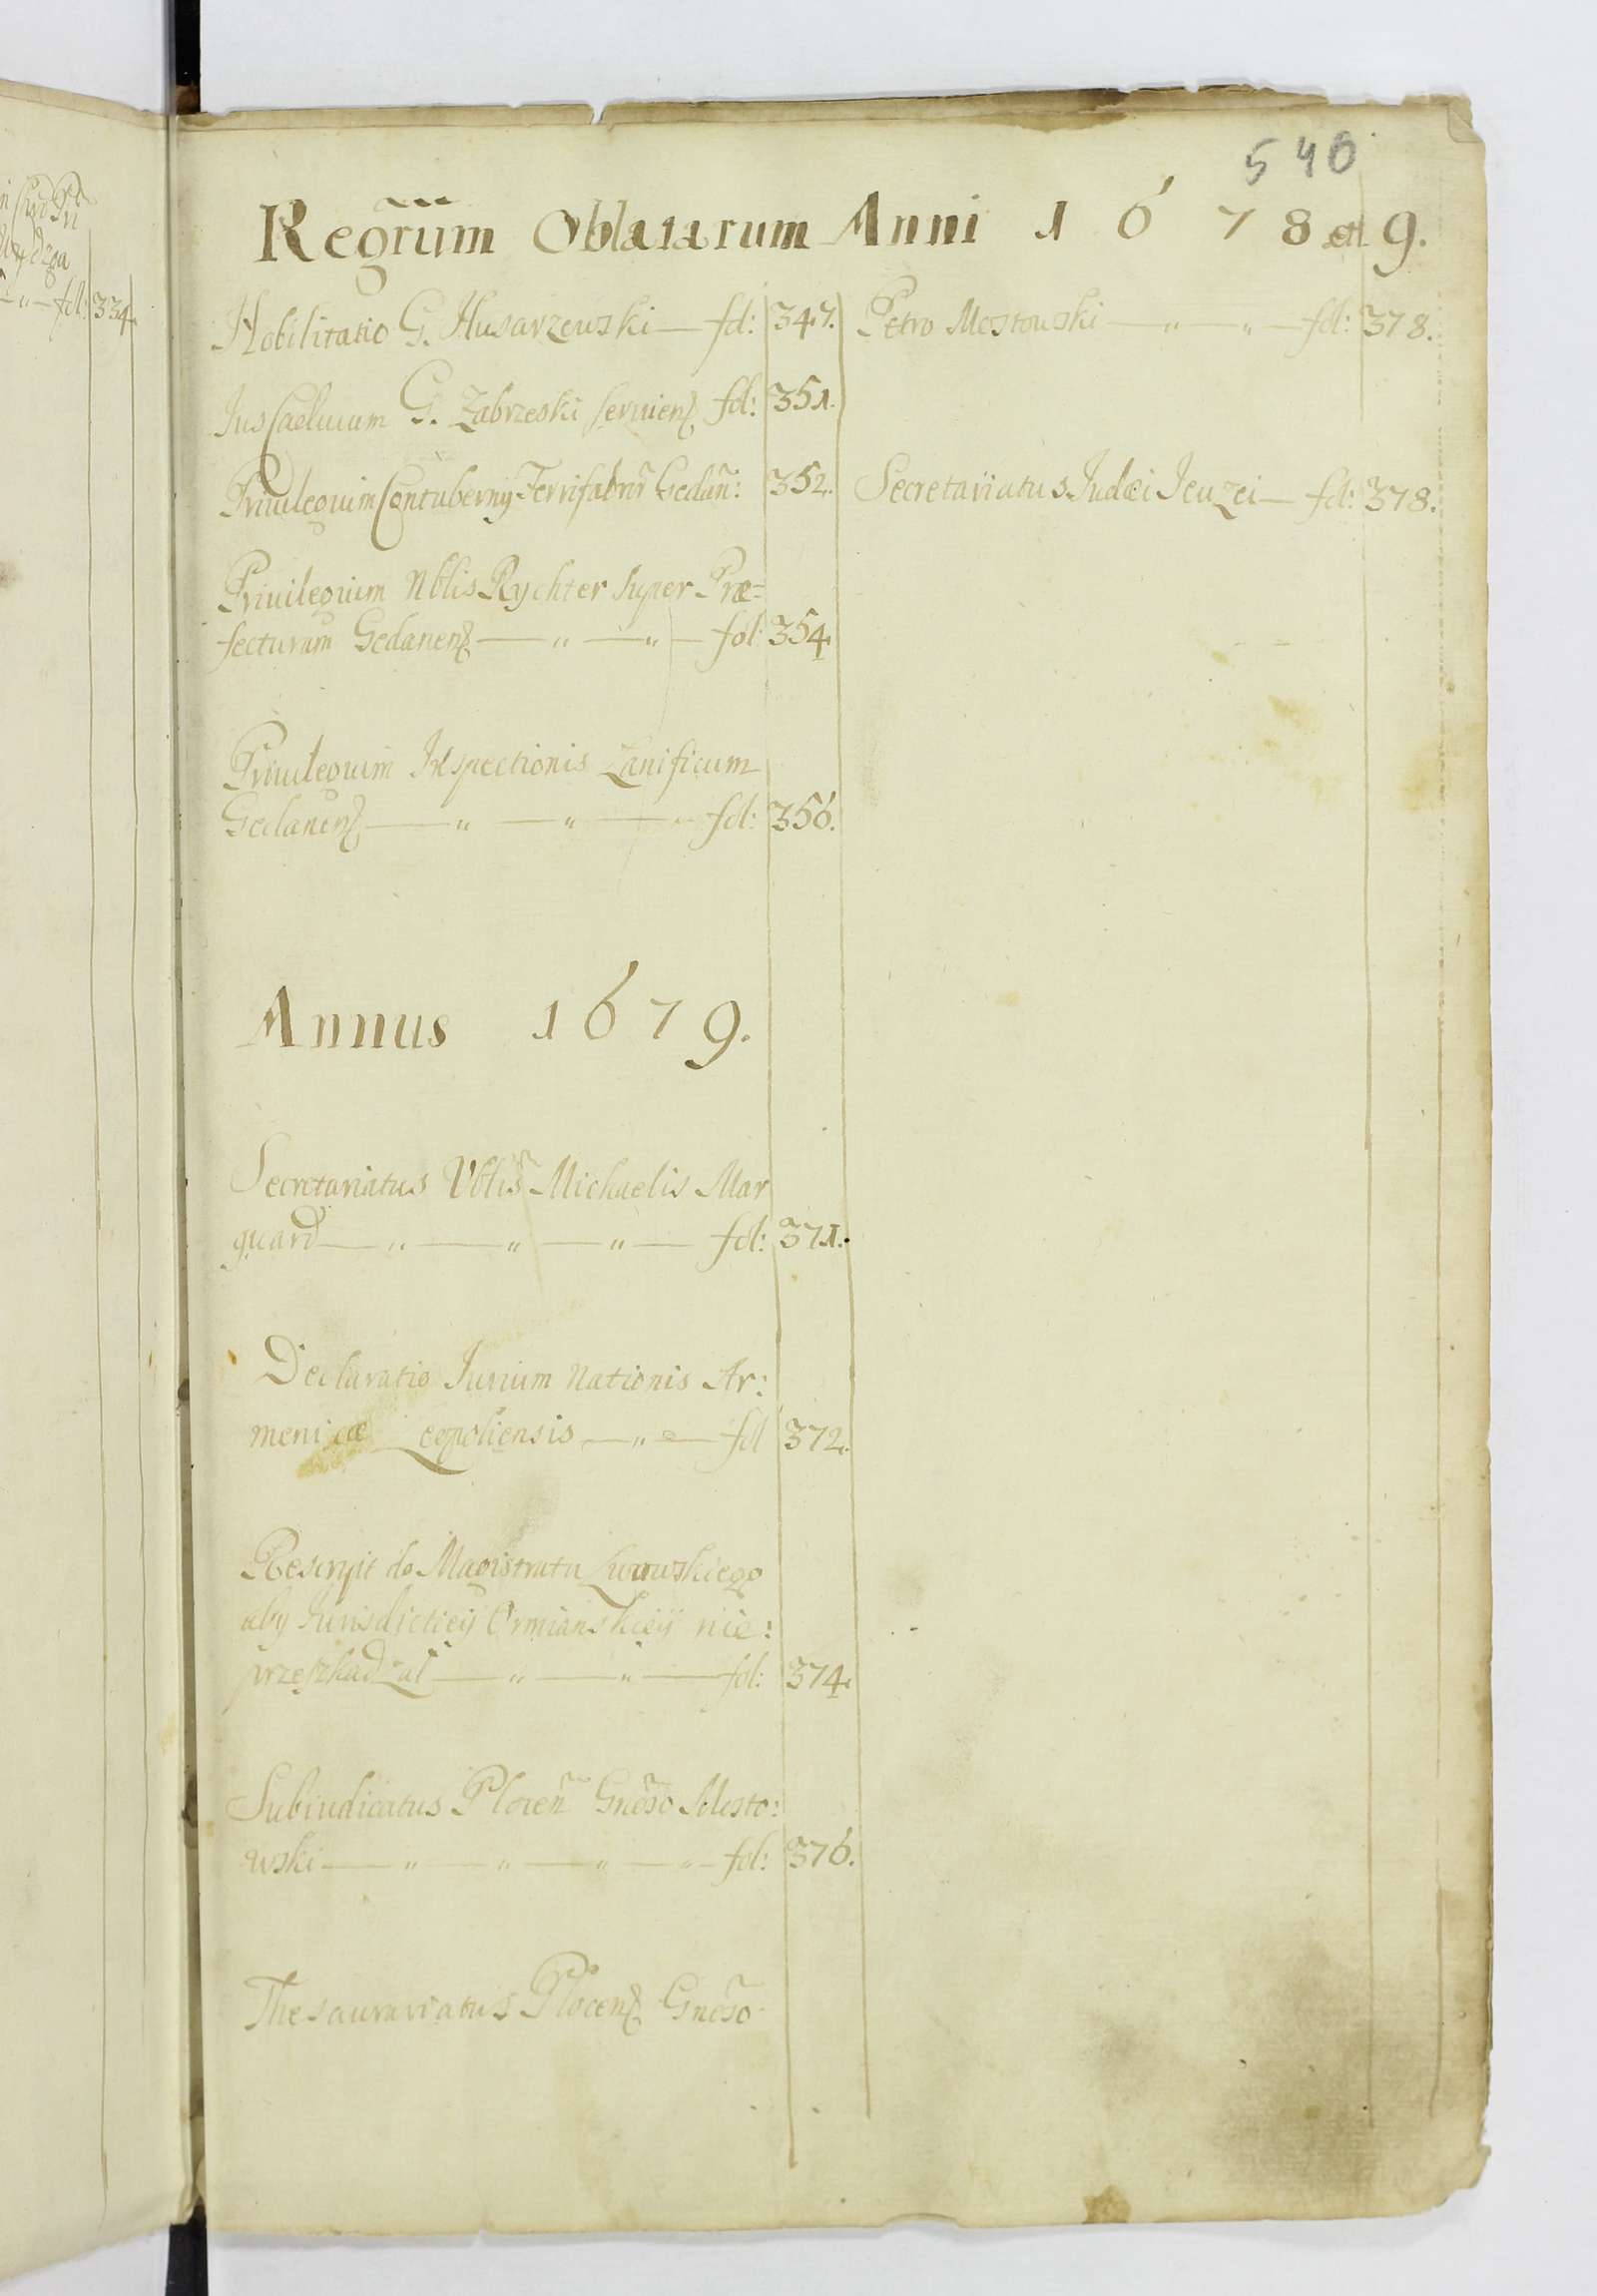 540
Regr̃um Oblatarum Anni 1678 et 9.
Nobilitatio G. Husarzewski — fol: 347.
Jus Caducum G. Zabrzeski seruien fol: 351.
Priuilegium Contubernij Ferrifabrr̃ Gedañ: 352.
Priuilegium Nblis Rychter super Præ=
fecturam Gedanen — " — " — fol: 354.
Priuilegium Inspectionis Lanificum
Gedanen — " — " — fol: 356.
Annus 1679.
Secretariatus Nblis Michaelis Mar
quard — " — " — " — fol: 371.
Declaratio Jurium Nationis Ar:
menicæ Leopoliensis — " — fol 372.
Rescript do Magistratu Lwowskiego
aby Jurisdicticij Ormianskieij nie:
przeszkadzał — " — " — fol: 374.
Subiudicatus Płoceñ Gnõso Mosto:
wski — " — " — " — " — fol: 376.
Thesaurariatus Plocen Gnõso
Petro Mostowski — " — " — fol: 378.
Secretariatus Judæi Jeuzei — fol: 378.
334.